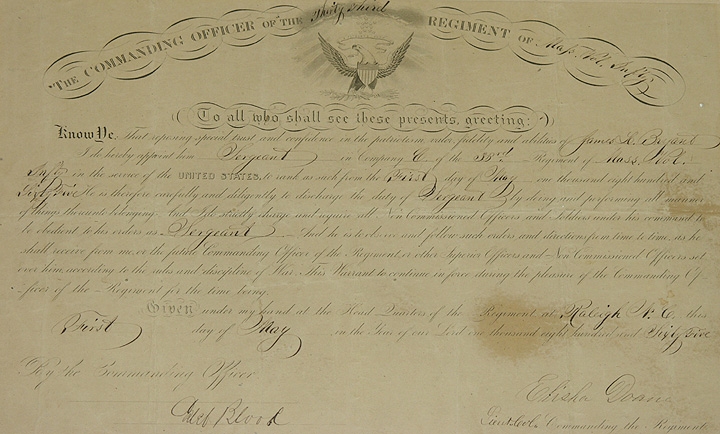 THE COMMANDING OFFICER OF THE Thirty Third REGIMENT OF Mass. Vol. Infty.
To all who shall see these presents, greeting:
Know Ye, That reposing special trust and confidence in the patriotism, valor, fidelity and abilities of James L. Bryant
I do hereby appoint him Sergeant in Company E of the 33rd Regiment of Mass. Vol.
Infty in the service of the UNITED STATES, to rank as such from the First day of May one thousand eight hundred and
Sixty Five He is therefore carefully and diligently to discharge the duty of Sergeant by doing and performing all manner
of things thereunto belonging. And I do strictly charge and require all Non Commissioned Officers and Soldiers under his command to
be obedient to his orders as Sergeant And he is to observe and follow such orders and directions from time to time, as he
shall receive from me, or the future Commanding Officer of the Regiment, or other Superior Officers and Non Commissioned Officers set
over him, according to the rules and discipline of War. This Warrant to continue in force during the pleasure of the Commanding Of-
ficer of the Regiment for the time being.
Given under my hand at the Head Quarters of the Regiment, at Raleigh N. C. this
First day of May in the Year of our Lord one thousand eight hundred and Sixty Five
By the Commanding Officer
Blood
Elisha Doane
Lieut. Col. Commanding the Regiment